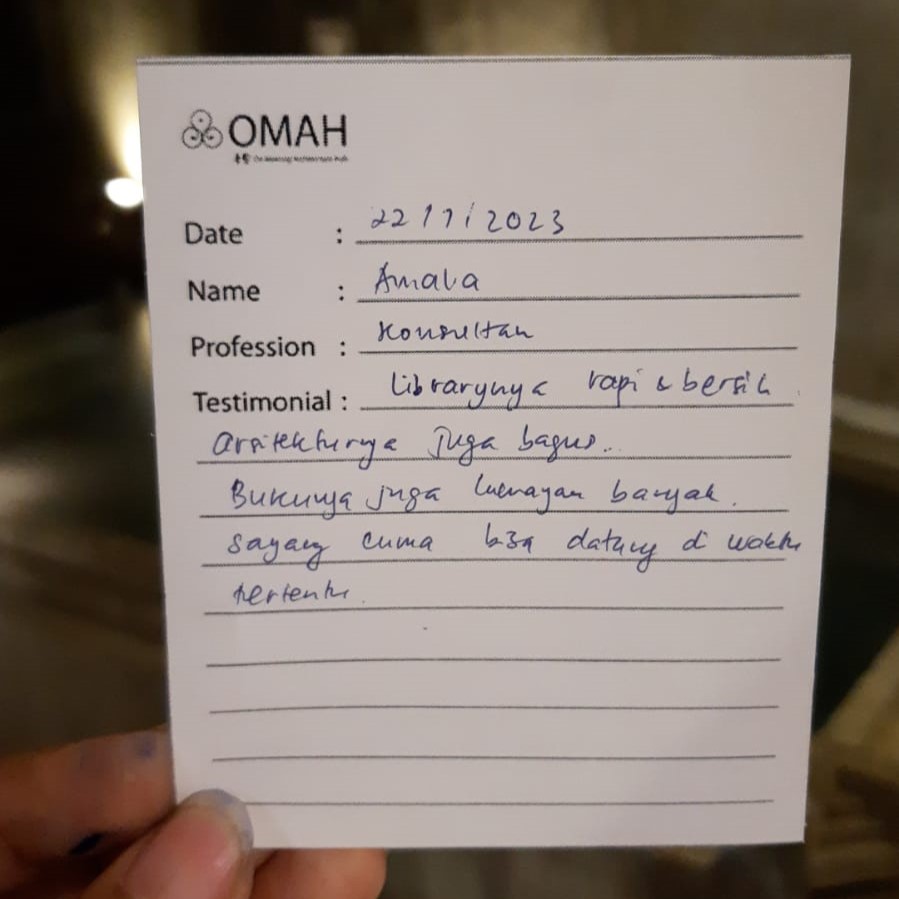 OMAH
Date : 22/7/2023
Name : Amala
Profession : Konsultan
Testimonial : Librarynya rapi & bersih
arsitekturnya juga bagus..
Bukunya juga lumayan banyak.
sayang cuma b3a datang di waktu
tertentu.